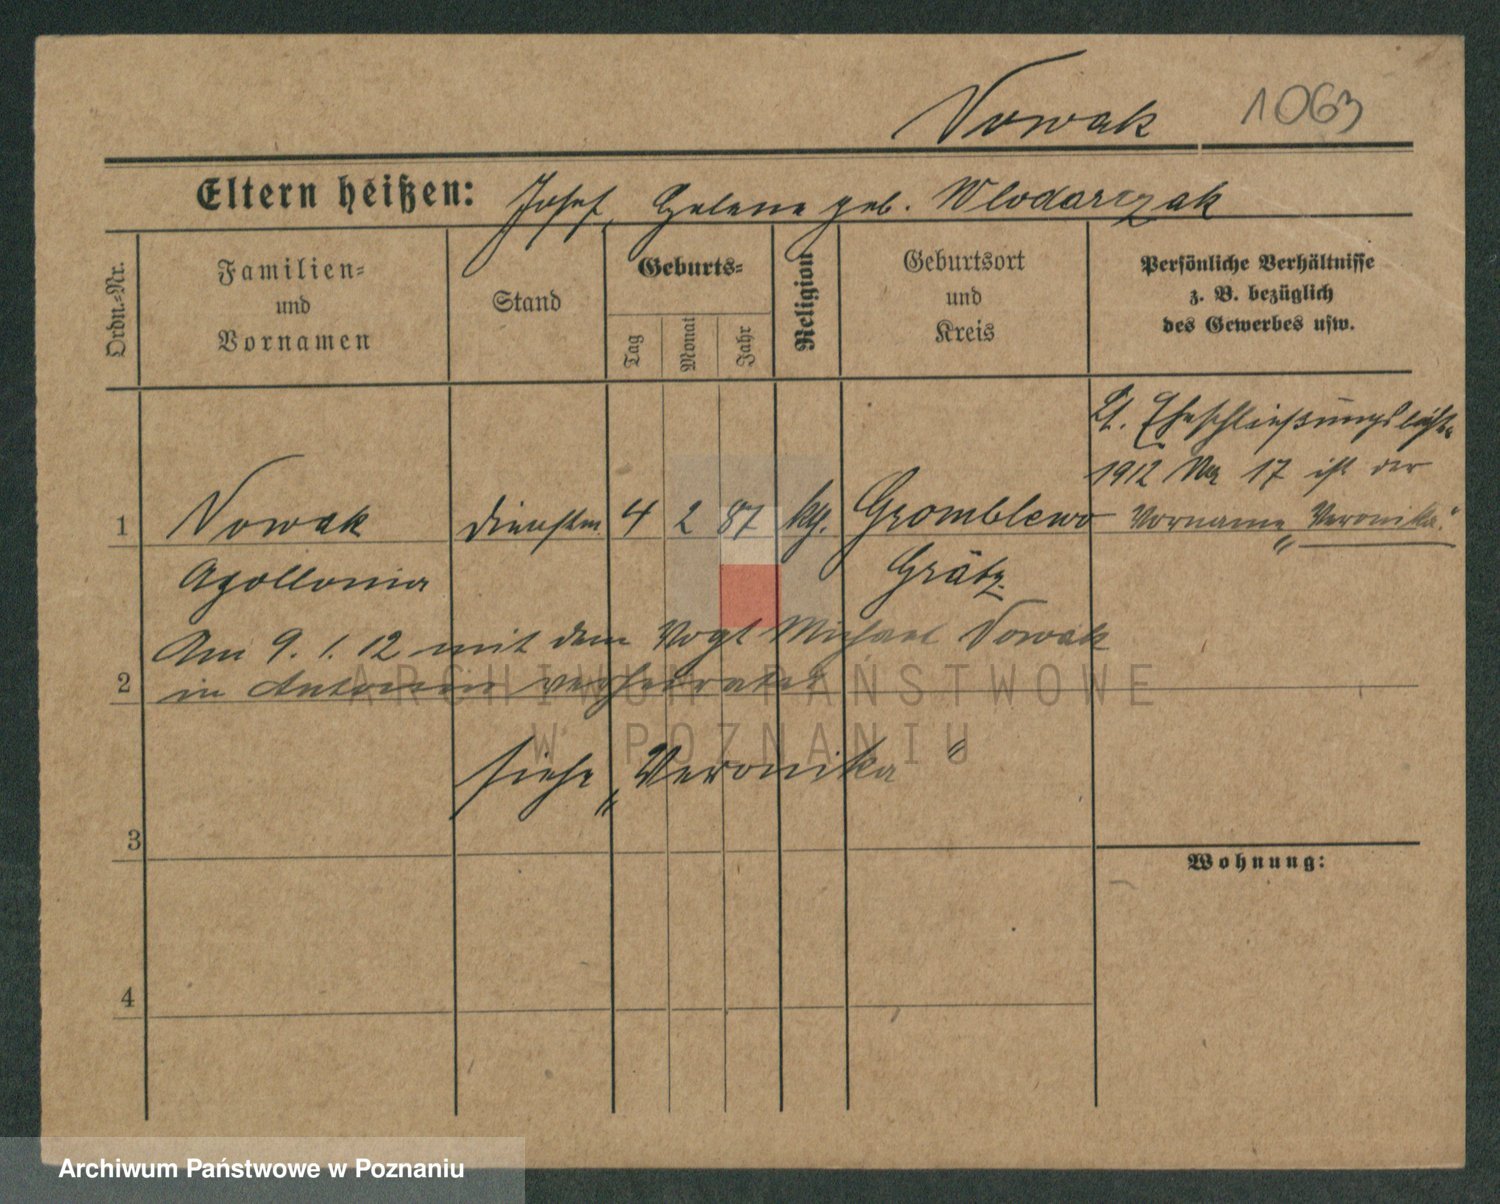 Nowak 1063
Eltern heißen: Josef, Helene geb. Wlodarczak
Ordn.-Nr.
Familien-
und
Vornamen
Stand
Geburts-
Tag
Monat
Jahr
Religion
Geburtsort
und
Kreis
Persönliche Verhältnisse
z. B. bezüglich
des Gewerbes usw.
Lt. Eheschließungsliste
1912 Nr 17 ist der
Vorname „Veronika.“
1 Nowak Dienstm. 4 2 87 kth. Gromblewo
Apollonia Grätz
Am 9. 1. 12 mit dem Vogt Michael Nowak
2 in verheiratet
siehe „Veronika“
3
Wohnung:
4
ARCHIWUM PAŃSTWOWE
W POZNANIU
Archiwum Państwowe w Poznaniu